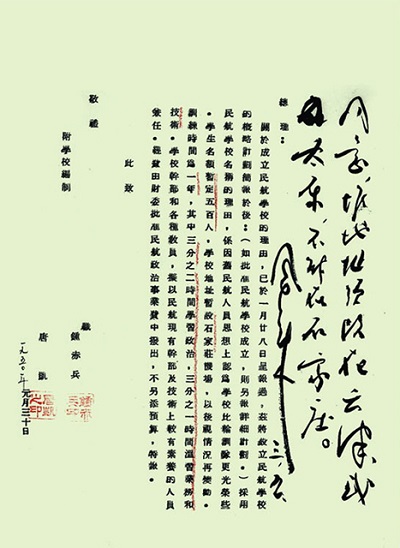 同意,惟地址须改在天津或
太原,不能在石家庄。
周恩来
三.五
總理:
關於成立民航學校的理由,已於一月廿八日呈報過,茲將設立民航學校
的概略計劃簡報於後:(如批准民航學校成立,則另報詳細計劃。)採用
民航學校名稱的理由,係因舊民航人員思想上認為學校比輪訓隊更光榮些
。學生名額暫定五百人,學校地址暫設石家莊機場,以後視情況再變動。
訓練時間為一年,其中三分之二時間學習政治,三分之一時間溫習業務和
技術。學校幹部和各種教員,擬以民航現有幹部及技術上較有素養的人員
兼任。經費由財委批准民航政治事業費中撥出,不另添預算,特報。
此致
敬禮
附學校編制
職
鍾赤兵
唐凱
一九五〇年元月三十日